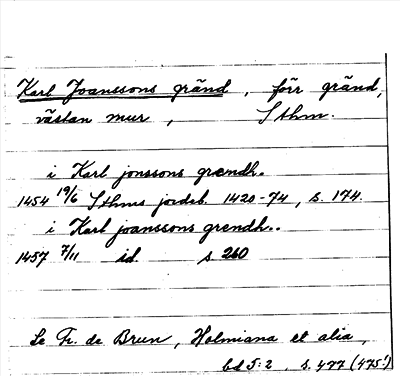 Karl Joanssons gränd, förr gränd,
västan mur, Sthm.
i Karl jonssons grændh.
1454 19/6 Sthms jordeb. 1420-74, s. 174.
i Karl joanssons grendh..
1457 7/11 id. s 260
Se Fr. de Brun, Holmiana et alia,
bd I:2, s. 477 (475!)